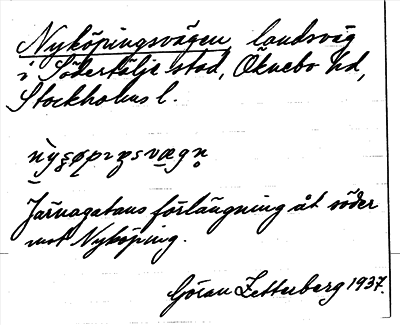 Nyköpingsvägen landsväg
i Södertälje stad, Öknebo hd,
Stockholms l.
Järnagatans förlängning åt söder
mot Nyköping.
Göran Zetterberg 1937.